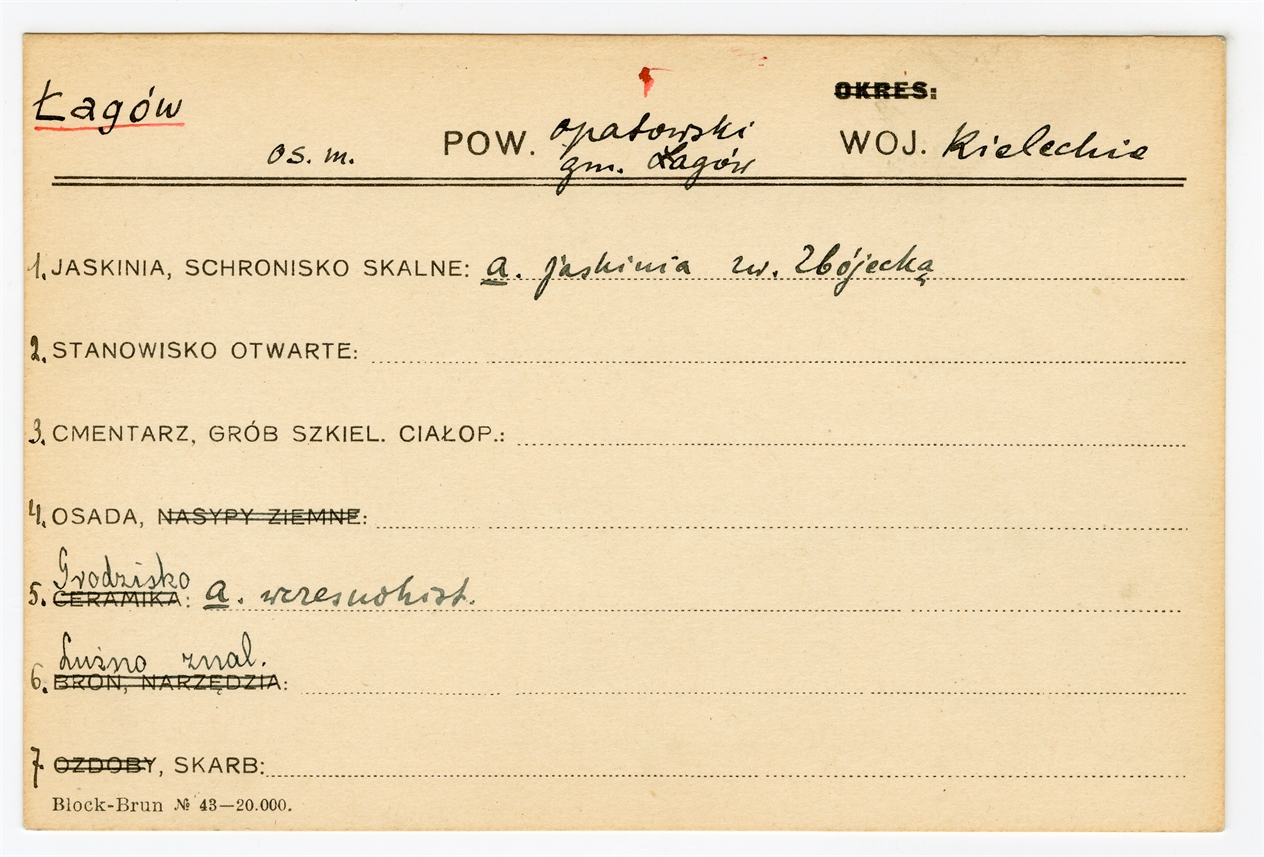 OKRES:
Łagów
os. m. POW. opatowski WOJ. Kieleckie
gm. Łagów
1. JASKINIA, SCHRONISKO SKALNE: a. jaskinia zw. Zbójecką
2. STANOWISKO OTWARTE:
3. CMENTARZ, GRÓB SZKIEL. CIAŁOP.:
4. OSADA, NASYPY ZIEMNE:
Grodzisko
5. CERAMIKA: a. wczesnohist.
Luźno znal.
6. BROŃ, NARZĘDZIA:
7 OZDOBY, SKARB:
Block-Brun № 43—20.000.